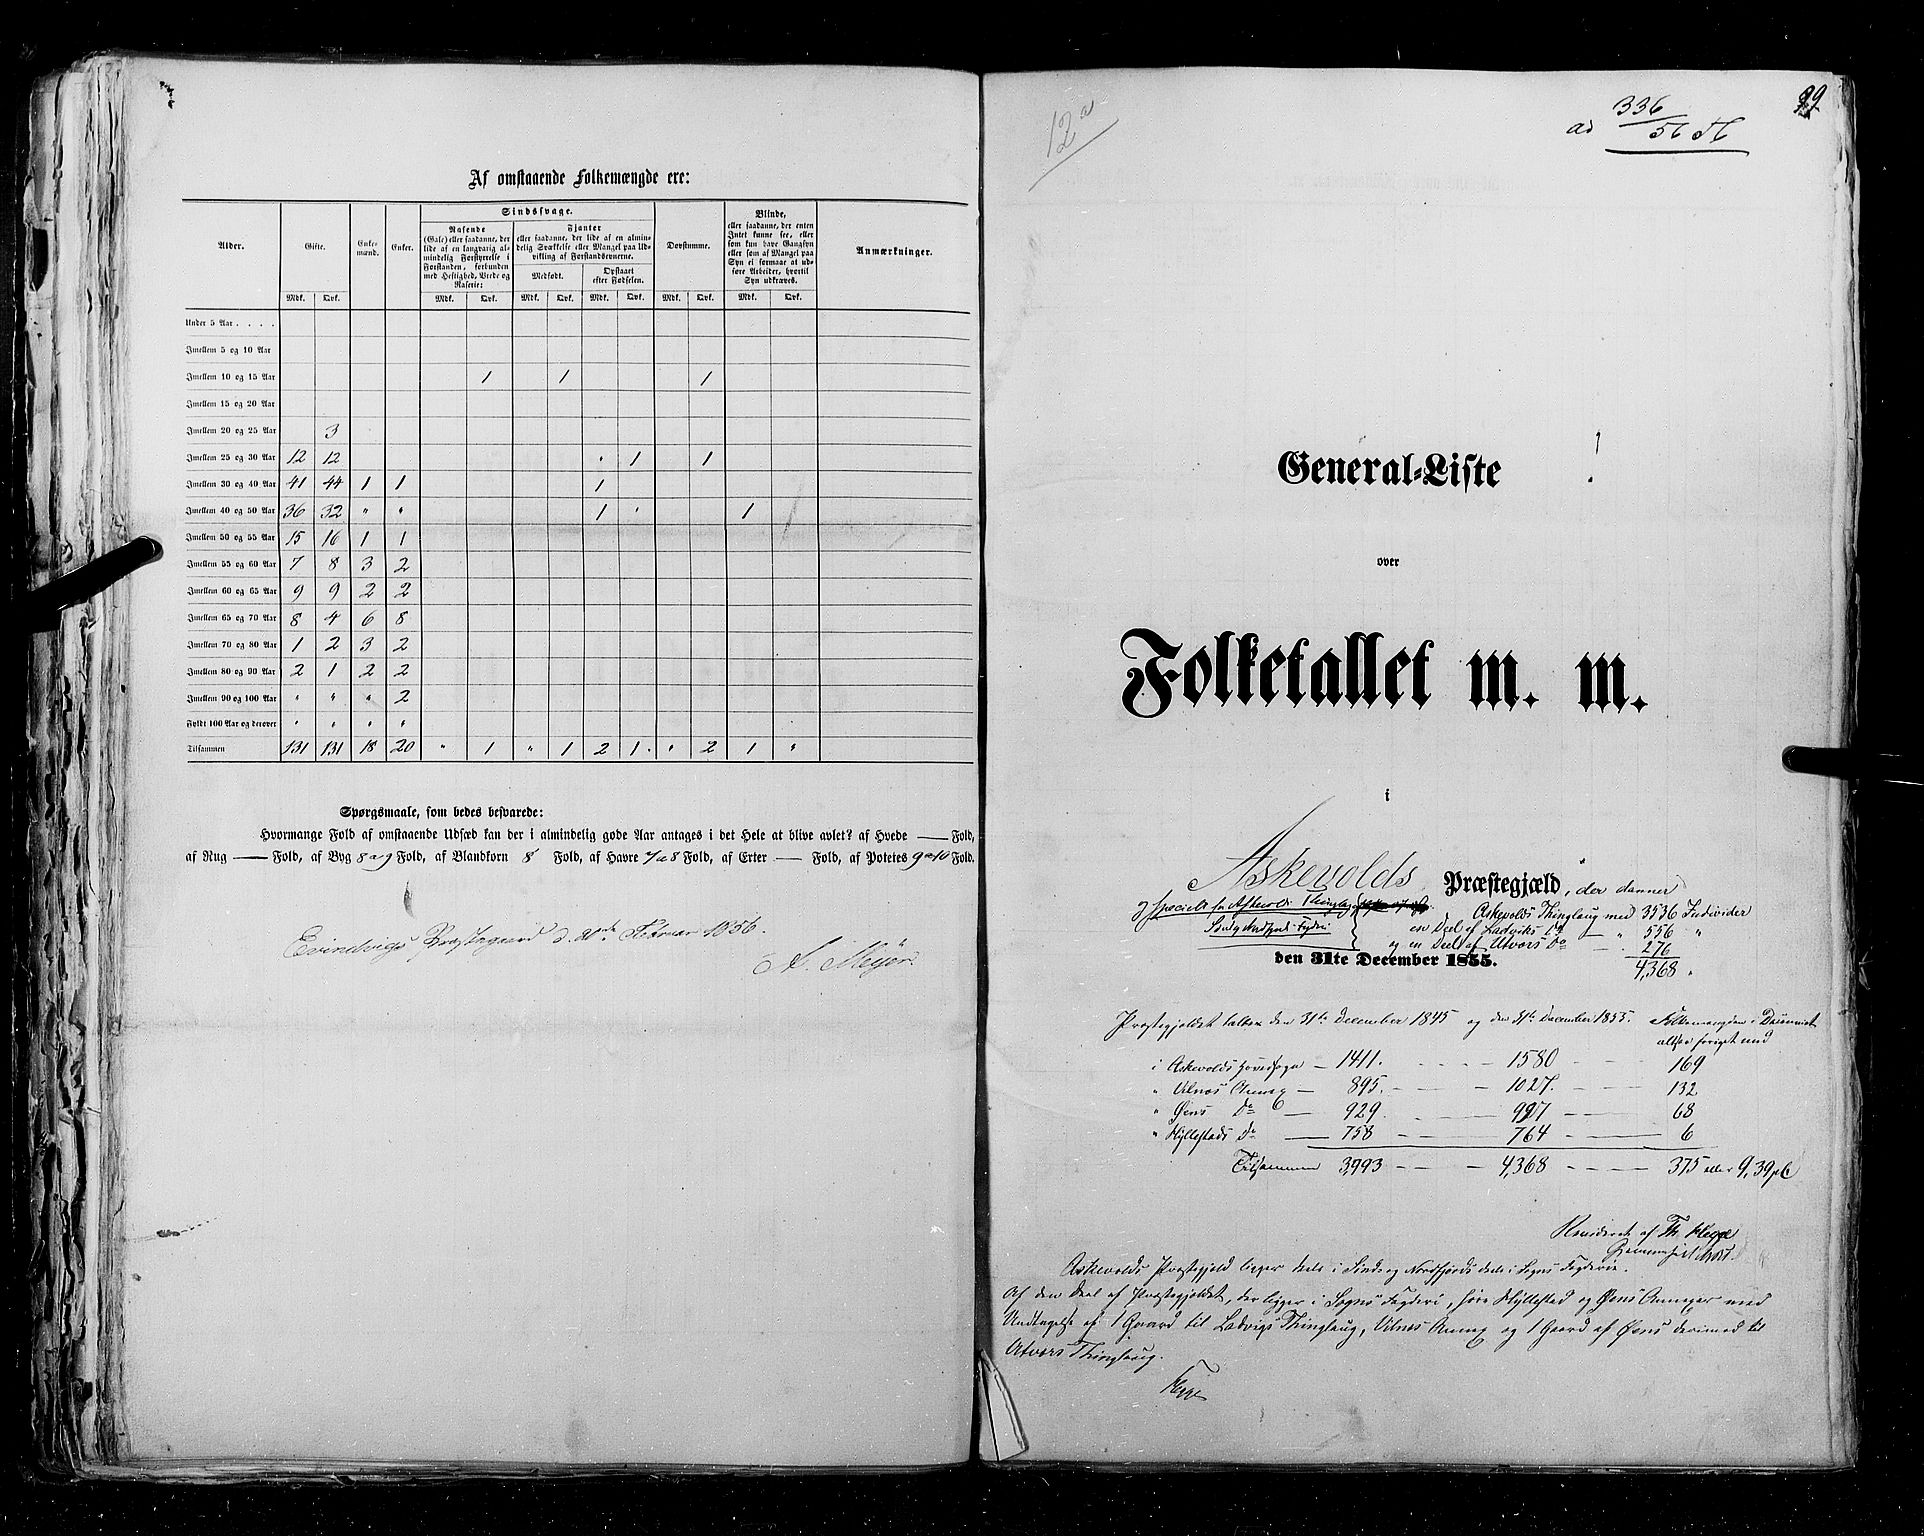 Af omstaaende Folkemængde ere:
Alder. Gifte. Enkemænd. Enker. Sindssvage. Døvstumme. Blinde, Anmærkninger.
Rasende (Gale) eller saadanne, der lide af en langvarig almindelig Forstyrrelse i Forstanden, forbunden med Heftighed, Vrede og Raserie:
Fjanter eller saadanne, der lide af en almindelig Svækkelse eller Mangel paa Udvikling af Forstandsevnerne.
Medfødt. Opstaaet efter Fødselen.
eller saadanne, der enten Intet kunne see, eller som kun have Gangsyn eller som af Mangel paa Syn ei formaae at udføre Arbeider, hvortil Syn udkræves.
Mdk. Qvk. Mdk. Qvk. Mdk. Qvk. Mdk. Qvk. Mdk. Qvk. Mdk. Qvk.
Under 5 Aar . . . .
Imellem 5 og 10 Aar
Imellem 10 og 15 Aar 1 1 1
Imellem 15 og 20 Aar
Imellem 20 og 25 Aar 3
Imellem 25 og 30 Aar 12 12 " 1 1
Imellem 30 og 40 Aar 41 44 1 1 1
Imellem 40 og 50 Aar 36 32 " " 1 " 1
Imellem 50 og 55 Aar 15 16 1 1
Imellem 55 og 60 Aar 7 8 3 2
Imellem 60 og 65 Aar 9 9 2 2
Imellem 65 og 70 Aar 8 4 6 8
Imellem 70 og 80 Aar 1 2 3 2
Imellem 80 og 90 Aar 2 1 2 2
Imellem 90 og 100 Aar " " " 2
Fyldt 100 Aar og derover " " " "
Tilsammen 131 131 18 20 " 1 " 1 2 1 " 2 1 "
Spørgsmaale, som bedes besvarede:
Hvormange Fold af omstaaende Udsæd kan der i almindelig gode Aar antages i det Hele at blive avlet? af Hvede — Fold,
af Rug — Fold, af Byg 8 a 9 Fold, af Blandkorn 8 Fold, af Havre 7 a 8 Fold, af Erter — Fold, af Potetes 9 a 10 Fold.
Evindvigs Præstegaard d. Februar 1856.
Meyer.
12 a
99
ad 336/56
General-Liste
over
Folketallet m. m.
i
Askevolds Præstegjæld, der danner
Askevolds Thinglaug med 3536 Individer
en Deel af Ladviks Do — " 556 "
og en Deel af Utvors Do — " 276
den 31te December 1855.
4,368 "
Præstegjeldet talte den 31te December 1845 og den 31te December 1855. Folkemængden i Decenniet
altsaa forøget med
i Askevolds Hovedsogn — 1411. - - - - 1580 - - - 169
" Vilnes Annex — 895. - - - 1027. - - - 132
" Øens Do — 929 - - - 997 - - - 68
" Hyllestads Do — 758 - - - 764 - - - 6
Tilsammen 3,993 - - - 4,368 - - - - 375 eller 9,39 pC
Revideret af Th. Hegge
Askevolds Præstegjeld ligger deels i Sønd og Nordfjords deels i Sogns Fogderie.
Af den Deel af Præstegjeldet, der ligger i Sogns Fogderi, høre Hyllestad og Øens Annexer med
Undtagelse af 1 Gaard til Ladvigs Thinglaug, Vilnes Annex og 1 Gaard af Øens derimod til
Utvors Thinglaug.
Hegge